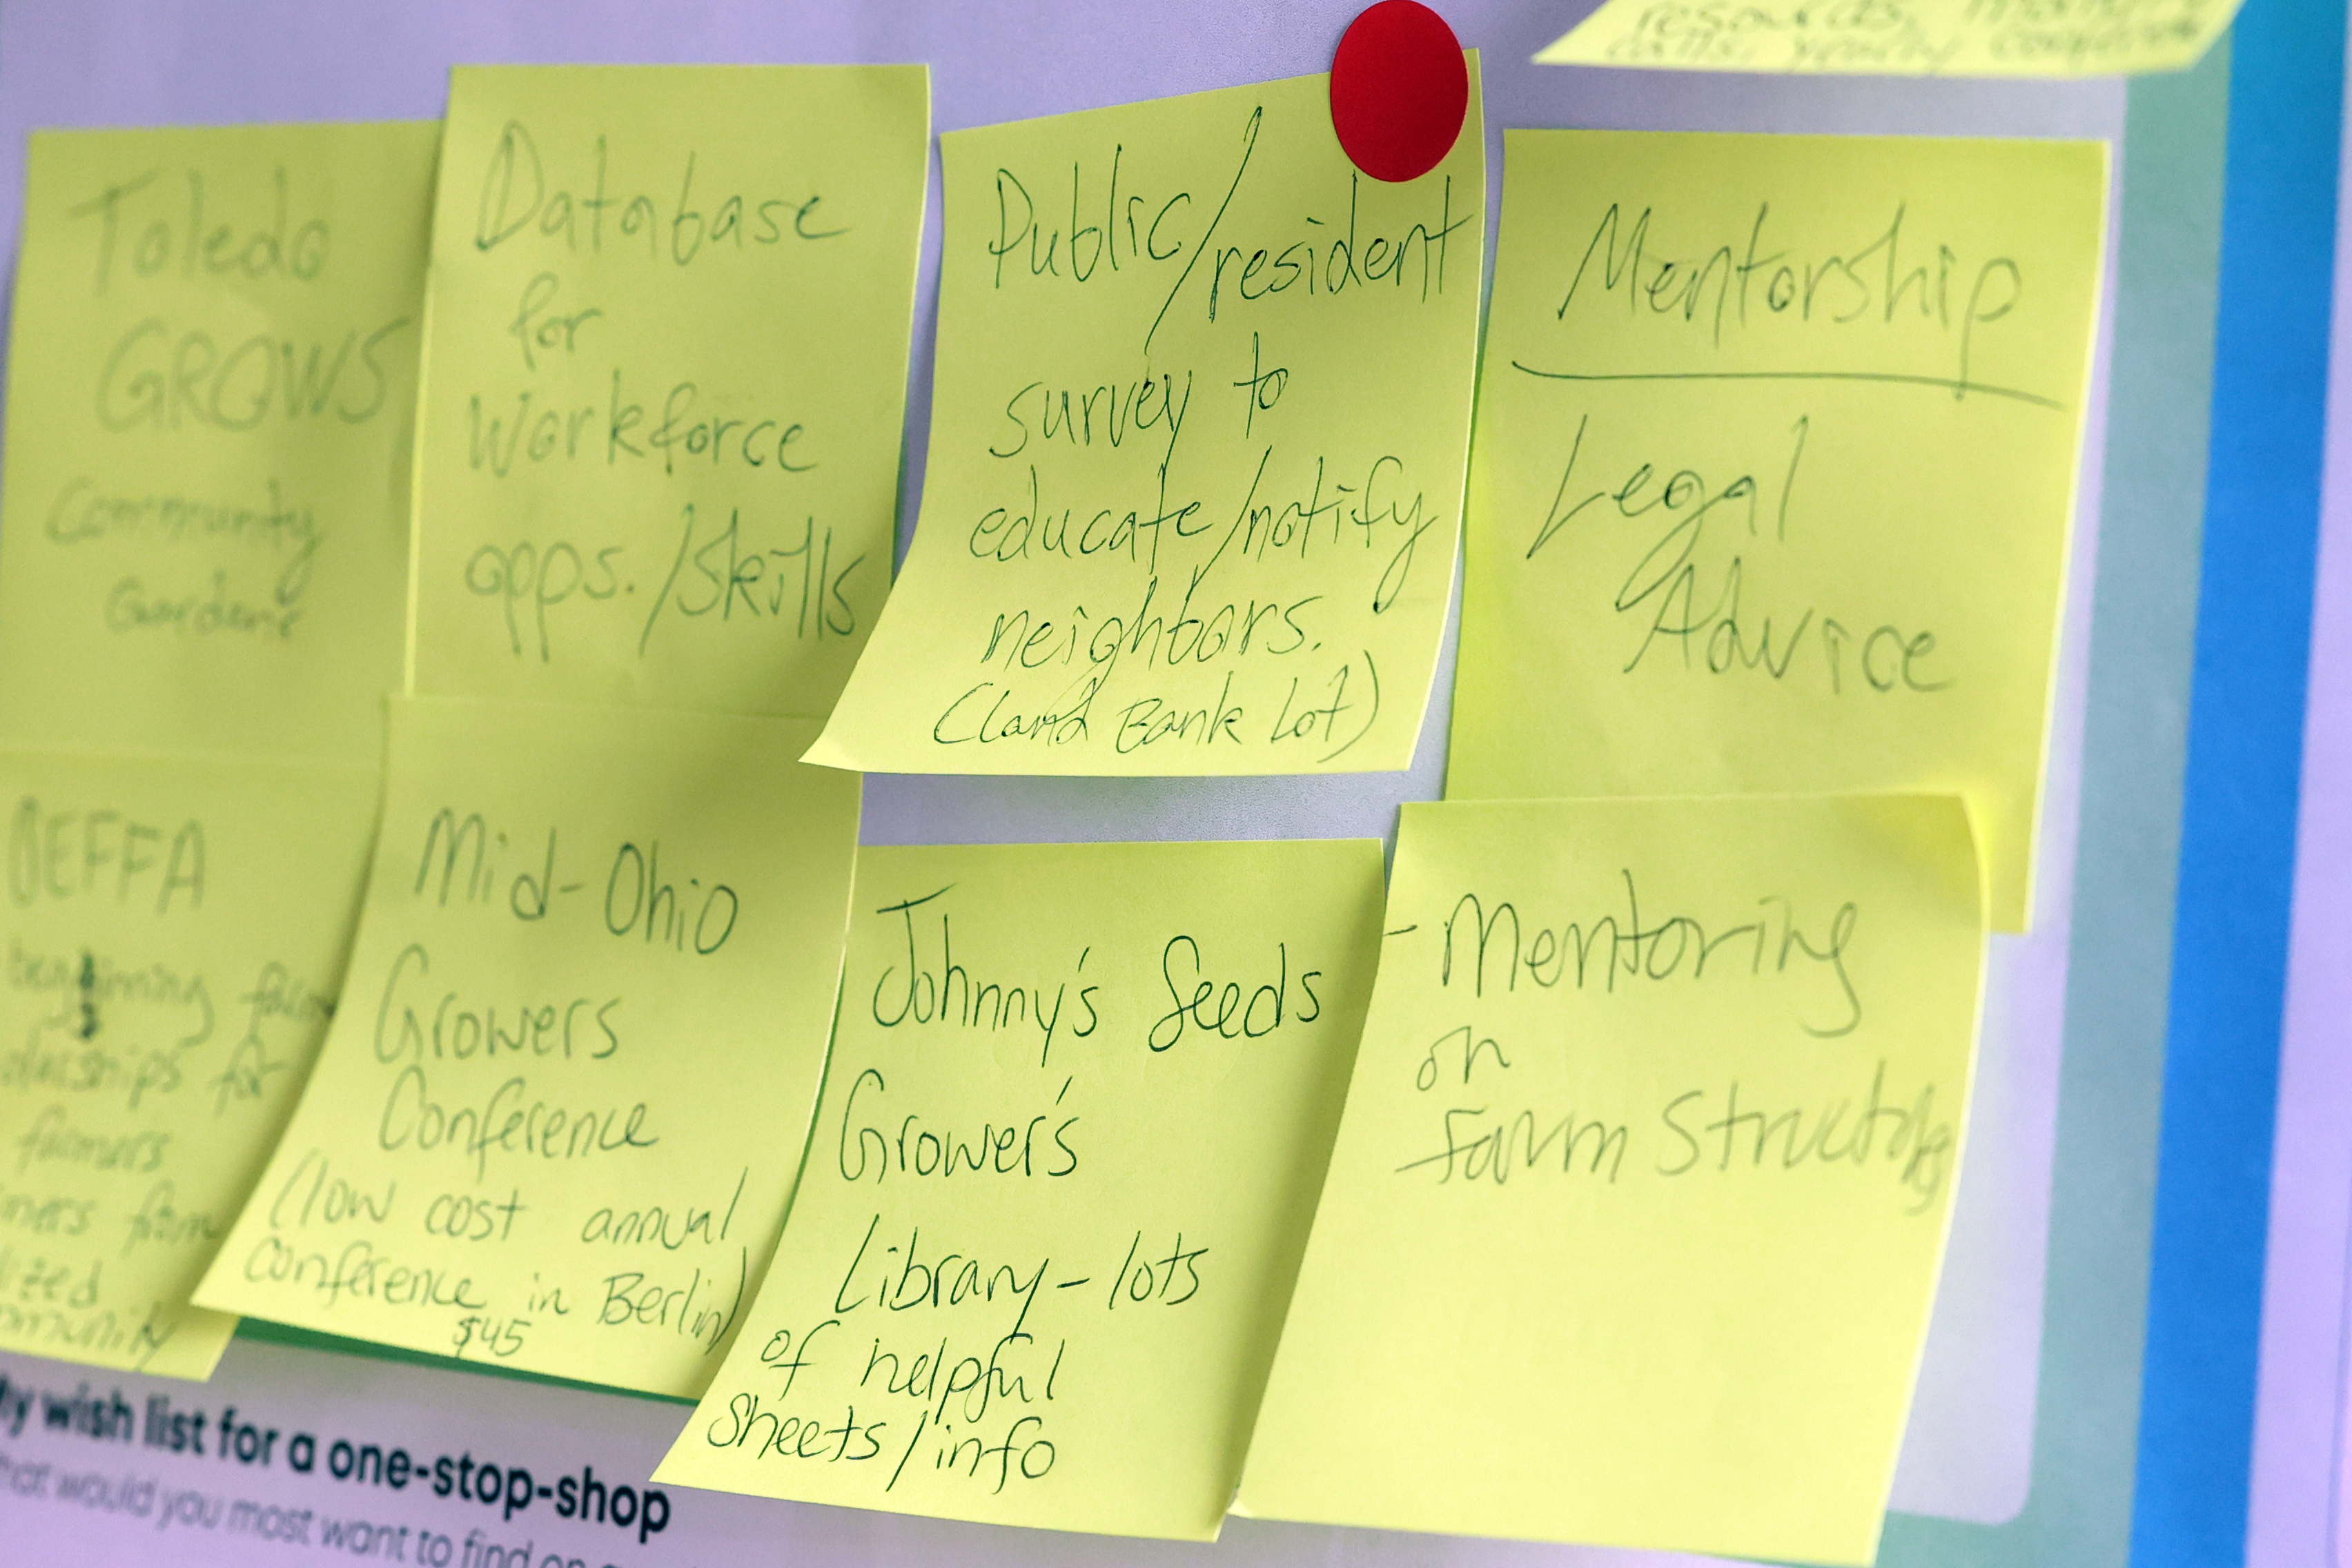 calls, yearly
Toledo
GROWS
Community
Gardens
Database
for
Workforce
opps./skills
Public/resident
survey to
educate/notify
neighbors.
(Land Bank Lot)
Mentorship
Legal
Advice
OEFFA
beginning farm
for
farmers
farm
Mid-Ohio
Growers
Conference
(low cost annual
conference in Berlin)
$45
Johnny's Seeds
Grower's
Library - lots
of helpful
Sheets/info
- Mentoring
on
Farm
My wish list for a one-stop-shop
What would you most want to find on